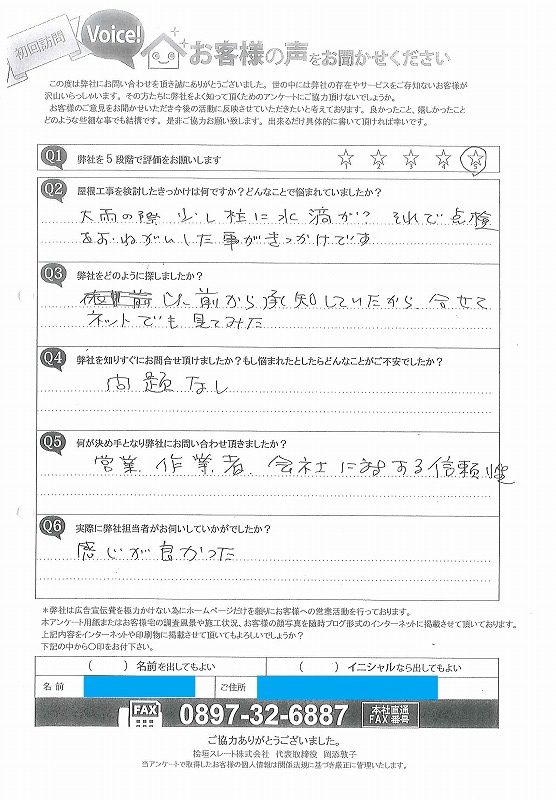 初回訪問
Voice!
お客様の声をお聞かせください
この度は弊社にお問い合わせを頂き誠にありがとうございました。世の中には弊社の存在やサービスをご存知ないお客様が
沢山いらっしゃいます。その方たちに弊社をよく知って頂くためのアンケートにご協力頂けないでしょうか。
お客様のご意見をお聞かせいただき今後の活動に反映させていただきたいと考えております。良かったこと、嬉しかったこと
どのような些細な事でも結構です。是非ご協力お願い致します。出来るだけ具体的に書いて頂ければ幸いです。
Q1 弊社を5段階で評価をお願いします ☆1 ☆2 ☆3 ☆4 ☆5
Q2 屋根工事を検討したきっかけは何ですか？どんなことで悩まれていましたか？
大雨の際 少し柱に水滴が? それで点検
をおねがいした事がきっかけです
Q3 弊社をどのように探しましたか？
以前から承知していたから、合せて
ネットでも見てみた
Q4 弊社を知りすぐにお問合せ頂けましたか？もし悩まれたとしたらどんなことがご不安でしたか？
問題なし
Q5 何が決め手となり弊社にお問い合わせ頂きましたか？
営業、作業者、会社に対する信頼性
Q6 実際に弊社担当者がお伺いしていかがでしたか？
感じが良かった
＊弊社は広告宣伝費を極力かけない為にホームページだけを頼りにお客様への営業活動を行っております。
本アンケート用紙またはお客様宅の調査風景や施工状況、お客様の顔写真を随時ブログ形式のインターネットに掲載させて頂いております。
上記内容をインターネットや印刷物に掲載させて頂いてもよろしいでしょうか？
下記の中から○印をお付下さい。
（ ）名前を出してもよい （ ）イニシャルなら出してもよい
名前 ご住所
FAX 0897-32-6887 本社直通 FAX番号
ご協力ありがとうございました。
桧垣スレート株式会社 代表取締役 岡添敦子
当アンケートで取得したお客様の個人情報は関係法規に基づき厳正に管理いたします。